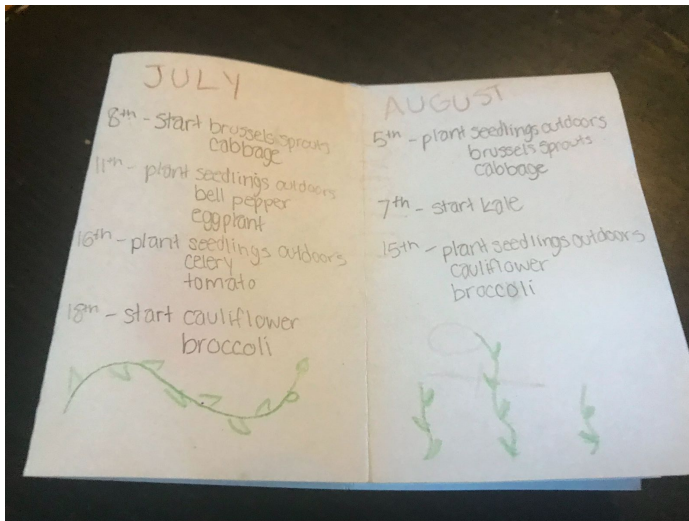 JULY
8th - start brussels sprouts
cabbage
11th - plant seedlings outdoors
bell pepper
eggplant
16th - plant seedlings outdoors
celery
tomato
18th - start cauliflower
broccoli
AUGUST
5th - plant seedlings outdoors
brussels sprouts
cabbage
7th - start kale
15th - plant seedlings outdoors
cauliflower
broccoli